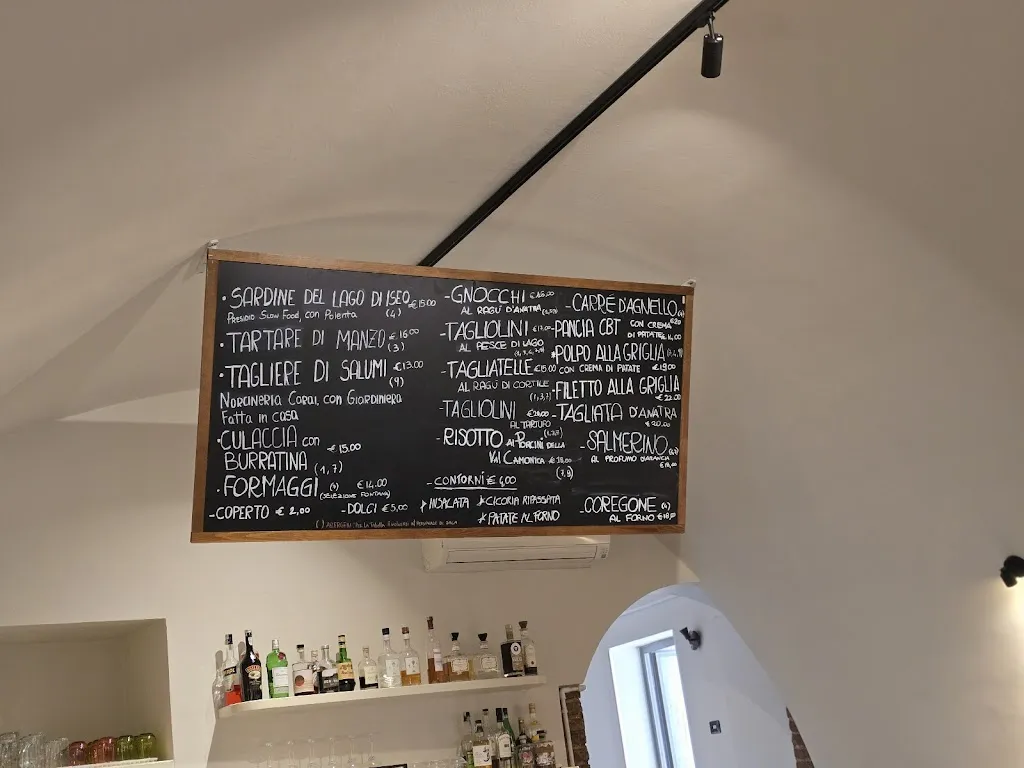 · SARDINE DEL LAGO DI ISEO €15.00
PRESIDIO SLOW FOOD, con Polenta (4)
· TARTARE DI MANZO € 16.00
(3)
· TAGLIERE DI SALUMI €13.00
(9)
NORCINERIA CORAI, con Giardiniera
Fatta in casa
· CULACCIA con € 15.00
BURRATINA (1,7)
· FORMAGGI € 14.00
(SELEZIONE FONTANA)
- COPERTO € 2,00 - DOLCI € 5,00
- GNOCCHI
AL RAGÙ D'ANATRA
- TAGLIOLINI €17.00
AL PESCE DI LAGO
- TAGLIATELLE €15.00
AL RAGÙ DI CORTILE
(1,3,7)
- TAGLIOLINI
AL TARTUFO
- RISOTTO AI PORCINI DELLA
VAL CAMONICA
(7,9)
- CONTORNI € 6,00
* INSALATA * CICORIA RIPASSATA
* PATATE AL FORNO
- CARRÈ D'AGNELLO
- PANCIA CBT CON CREMA
DI PATATE
* POLPO ALLA GRIGLIA
CON CREMA DI PATATE €19.00
- FILETTO ALLA GRIGLIA
€ 22.00
- TAGLIATA D'ANATRA
€ 20.00
- SALMERINO
AL PROFUMO D'ARANCIA
- COREGONE (4)
AL FORNO
( ) ALLERGENI